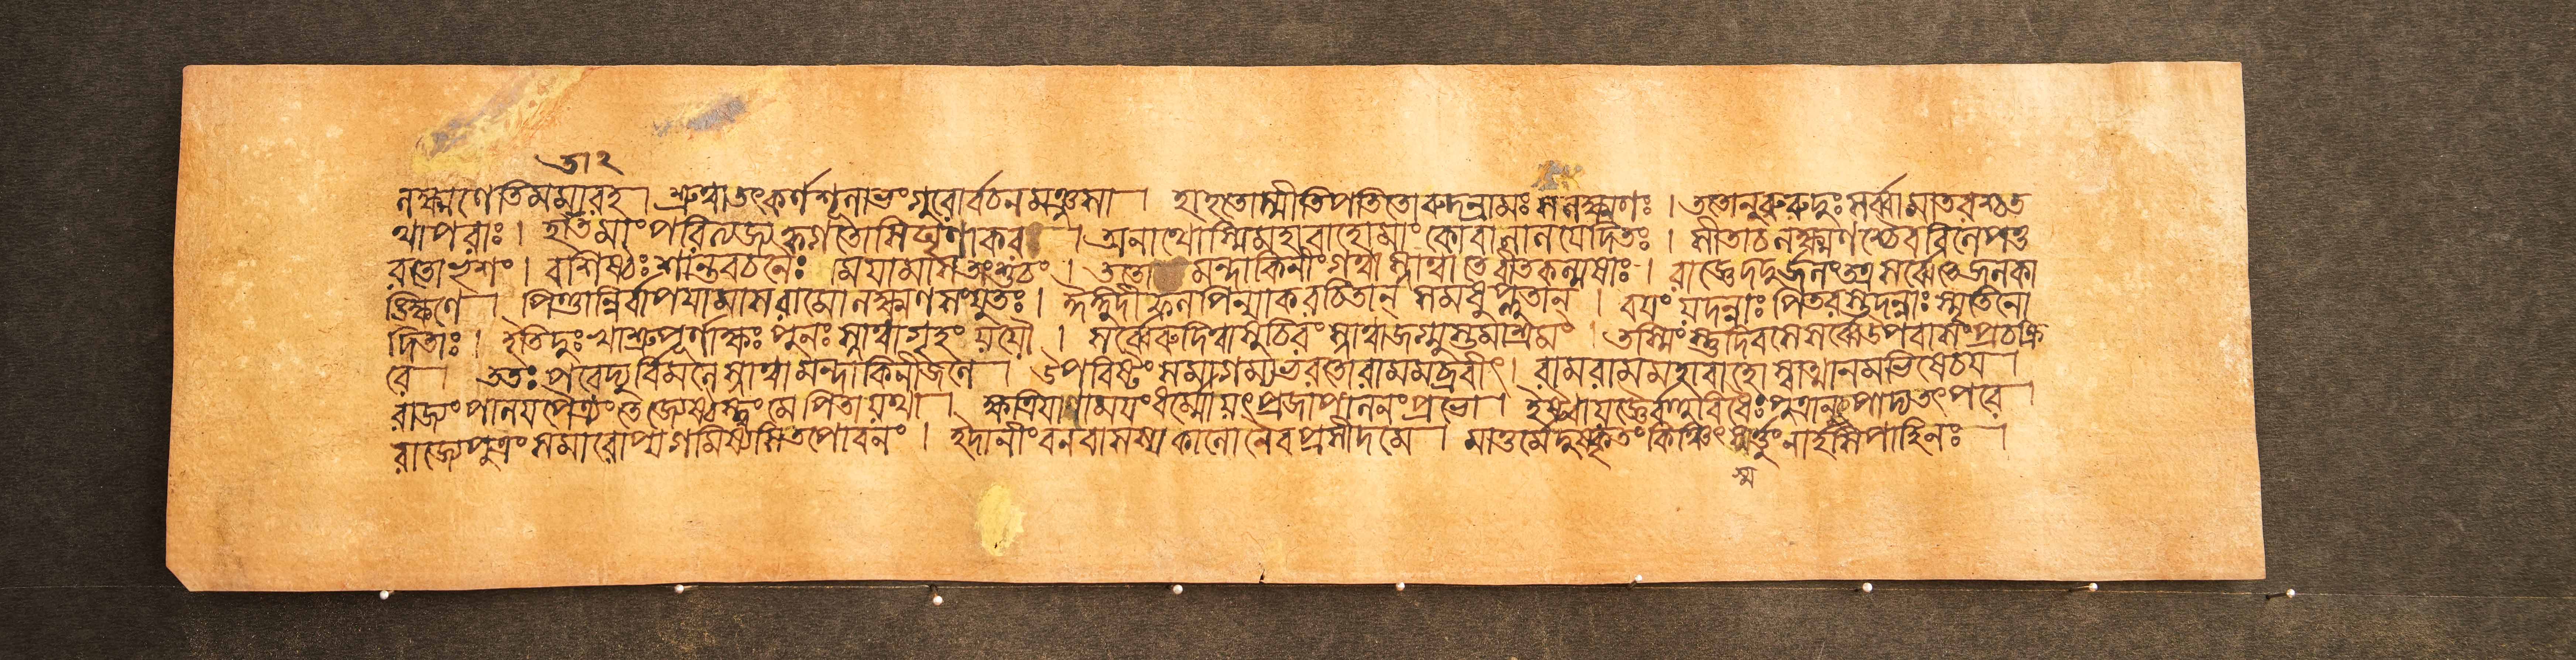 তা২
লক্ষ্মণেতিমমারহ। শ্রুত্বাতৎকর্ণশূলাভংগুরোর্বচনমঞ্জসা। হাহতোস্মীতিপতিতোৰুদন্রামঃসলক্ষ্মণঃ। ততোনুৰুৰুদুঃসর্ব্বামাতরশ্চত
থাপরাঃ। হাতমাংপরিত্যজ্যক্বগতোসিঘৃণাকর। অনাথোস্মিমহাবাহোমাংকোবালালযেদিতঃ। সীতাচলক্ষ্মণশ্চৈববিলেপতু
রতোভৃশং। বশিষ্ঠঃশান্তবচনৈঃ মযামাসতাংশুচং। ততো মন্দাকিনীংগত্বাস্নাত্বাতেবীতকল্মষাঃ। রাজ্ঞেদদুর্জলংতত্রসর্ব্বেতেজলকা
ঙ্ক্ষিণে। পিণ্ডান্নির্বাপযামাসরামোলক্ষ্মণসংযুতঃ। ইঙ্গুদীফলপিন্যাকরচিতান্ সমধুপ্লুতান্। বযংযদন্নাঃপিতরস্তদন্নাঃস্মৃতিনো
দিতাঃ। ইতিদুঃখাশ্রুপূর্ণাক্ষঃপুনঃস্নাত্বাগৃহংযযৌ। সর্ব্বেৰুদিত্বাসুচিরংস্নাত্বাজগ্মুস্তমাশ্রমং। তস্মিংস্তুদিবসেসর্ব্বেউপবাসংপ্রচক্রি
রে। ততঃপরেদ্যুর্বিমলেস্নাত্বামন্দাকিনীজলে। উপবিষ্টংসমাগম্যভরতোরামমব্রবীৎ। রামরামমহাবাহোস্বাত্মানমভিষেচয।
রাজ্যংপালযপৈত্র্যংতেজ্যেষ্ঠস্ত্বংমেপিতাযথা। ক্ষত্রিযাণামযংধর্ম্মোযৎপ্রজাপালনংপ্রভো। ইষ্ট্বাযজ্ঞৈর্বহুবিধৈঃপুত্রানুৎপাদ্যতৎপরে।
রাজ্যেপুত্রংসমারোপ্যগমিষ্যসিতপোবনং। ইদানীংবনবাসস্যকালোনৈবপ্রসীদমে। মাতুর্মেদুষ্কৃতংকিঞ্চিৎস্মর্ত্তুংনার্হসিপাহিনঃ।
স্ম